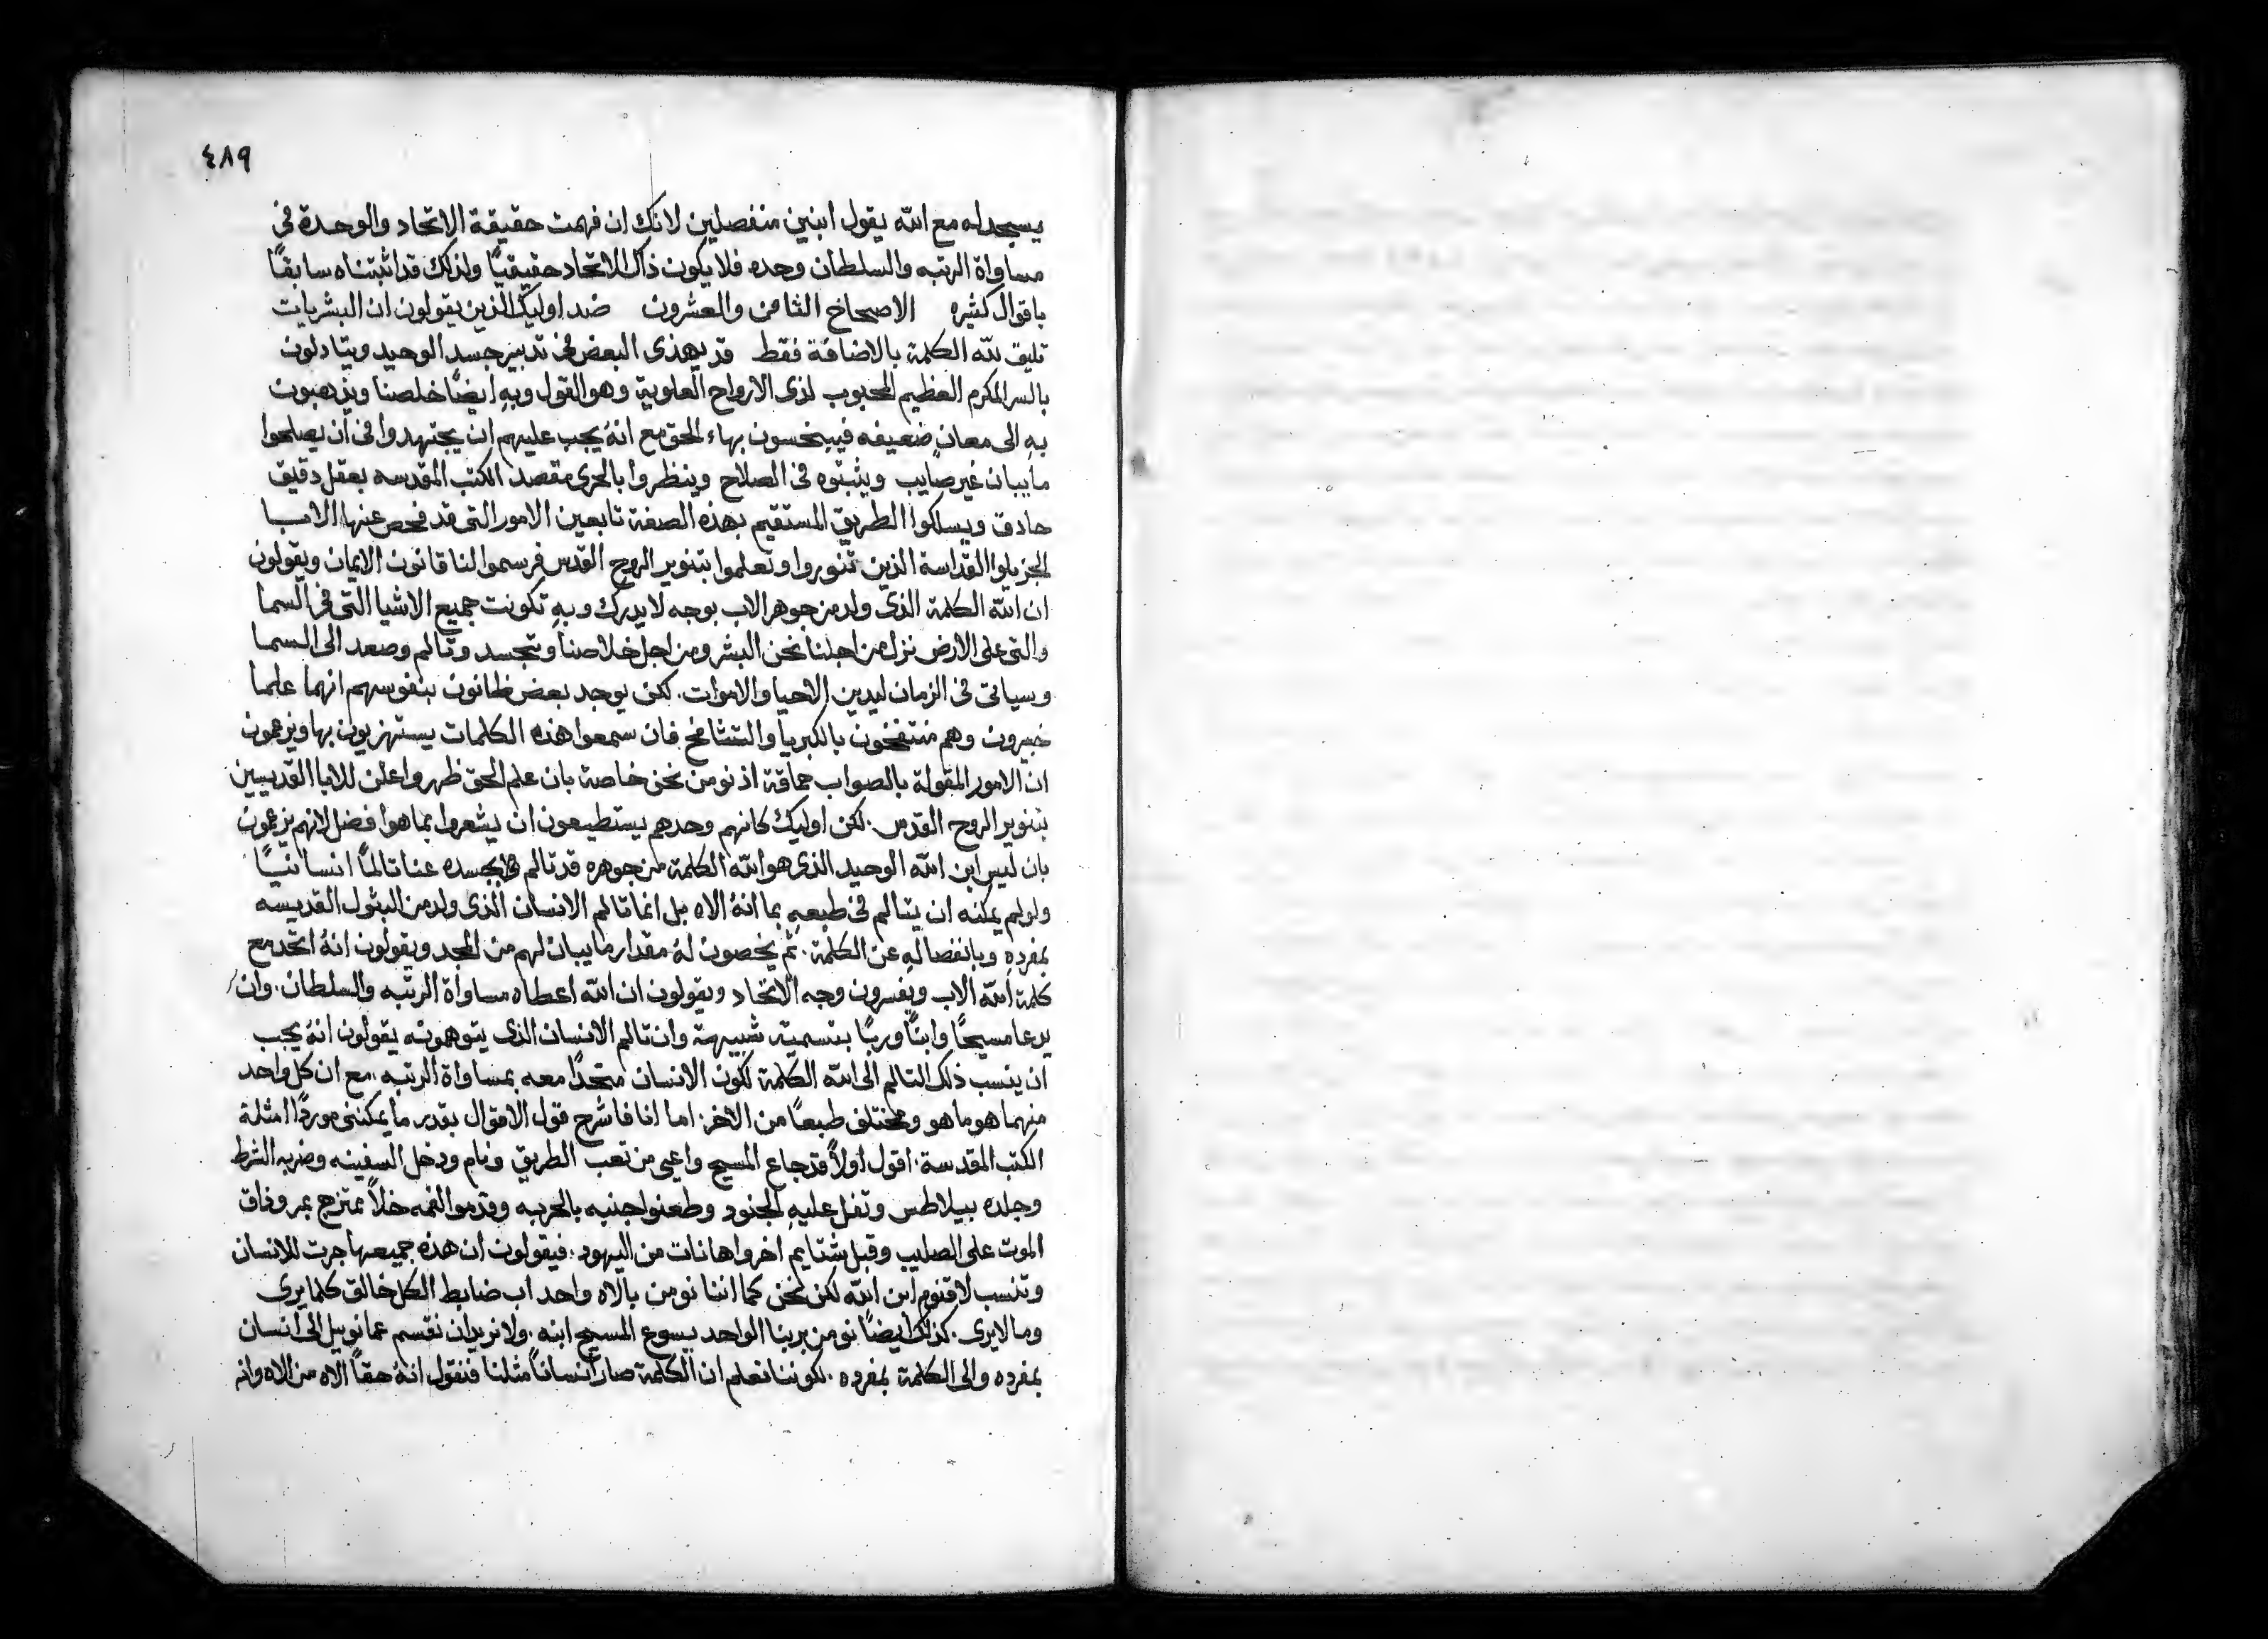 ٤٨٩
يسجد له مع الله يقول ابنين منفصلين لانك ان فهمت حقيقة الاتحاد والوحدة في
مساواة الرتبه والسلطان وحده فلا يكون ذاك الاتحاد حقيقيًا ولذلك قد اثبتناه سابقًا
باقوال كثيره الاصحاح الثامن والعشرون ضد اوليك الذين يقولون ان البشريات
تليق لله الكلمة بالاضافة فقط قد يهذى البعض في تدبير جسد الوحيد ويتادلون
بالسر المكرم العظيم المحبوب لذى الارواح العلوية وهو القول وبهِ ايضًا خلصنا ويذهبون
بهِ الى معانٍ ضعيفه فيبخسون بهاء الحق مع انهُ يجب عليهم ان يجتهدوا في ان يصلحوا
ما يبان غير صايب ويثبتوه في الصلاح وينظروا بالحرى مقصد الكتب المقدسه بعقل دقيق
حادق ويسلكوا الطريق المستقيم بهذه الصفة تابعين الامور التي قد فحص عنها الابا
الجزيلوا القداسة الذين تنوروا وتعلموا بتنوير الروح القدس فرسموا لنا قانون الايمان ويقولون
ان الله الكلمة الذي ولد من جوهر الاب بوجه لا يدرك وبهِ تكونت جميع الاشيا التي في السما
والتي على الارض نزل من اجلنا نحن البشر ومن اجل خلاصنا وتجسد وتالم وصعد الى السما
وسياتي في الزمان ليدين الاحيا والاموات. لكن يوجد بعض ظانون بنفوسهم انهما علما
خبيرون وهم منتفخون بالكبريا والتشامخ فان سمعوا هذه الكلمات يستهزيون بها ويزعمون
ان الامور المقولة بالصواب حماقة اذ نومن نحن خاصة بان علم الحق ظهر واعلن للابا القديسين
بتنوير الروح القدس. لكن اوليك كانهم وحدهم يستطيعون ان يشعروا بما هو افضل لانهم يزعمون
بان ليس ابن الله الوحيد الذي هو الله الكلمة من جوهره قد تالم بجسده عنا تالمًا انسانيًا
ولو لم يمكنه ان يتالم في طبعهِ بما انهُ الاه بل انما تالم الانسان الذي ولد من البتول القديسه
بمفردهِ وبانفصالهِ عن الكلمة. ثم يخصون لهُ مقدار ما يبان لهم من المجد ويقولون انهُ اتحد مع
كلمة الله الاب ويفسرون وجه الاتحاد ويقولون ان الله اعطاه مساواة الرتبه والسلطان. وان
يدعا مسيحًا وابنًا وربًا بتسمية شبيهة وان تالم الانسان الذى يتوهمونه يقولون انهُ يجب
ان ينسب ذلك التالم الى الله الكلمة لكون الانسان متحدًا معه بمساواة الرتبه. مع ان كل واحد
منهما هو ما هو ومختلف طبعًا من الاخر. اما انا فاشرح قول الاقوال بقدر ما يمكنني موردًا امثلة
الكتب المقدسة. اقول اولًا قد جاع المسيح واعيى من تعب الطريق ونام ودخل السفينه وضربه الشرط
وجلده بيلاطس وتفل عليهِ الجنود وطعنوا جنبه بالحربه وقدموا لفمه خلًا ممتزج بمر وذاق
الموت على الصليب وقبل شتايم اخر واهانات من اليهود. فيقولون ان هذه جميعها جرت للانسان
وتنسب لاقنوم ابن الله لكن نحن كما اننا نومن بالاه واحد اب ضابط الكل خالق كلما يرى
وما لا يرى. كذلك ايضًا نومن بربنا الواحد يسوع المسيح ابنه. ولا نريد ان نقسم عمانوييل الى انسان
بمفرده والى الكلمة بمفرده. لكوننا نعلم ان الكلمة صار انسانًا مثلنا فنقول انهُ حقًا الاه من الاه وانه